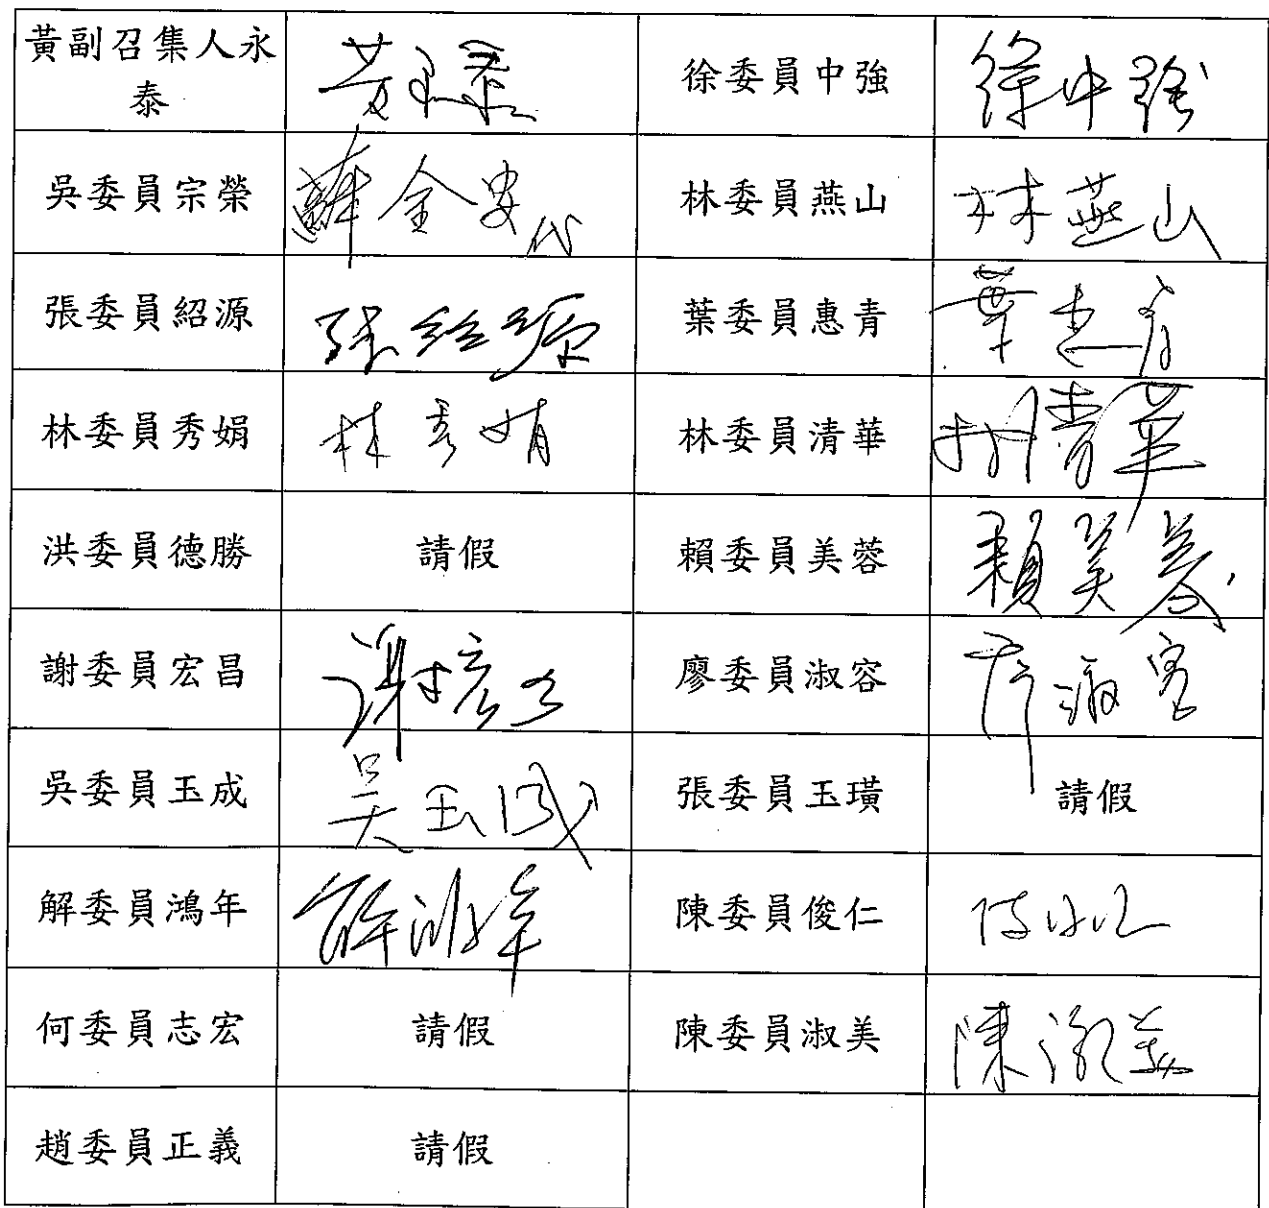 黃副召集人永
泰
黃永泰
徐委員中強
徐中強
吳委員宗榮
薛金安代
林委員燕山
林燕山
張委員紹源
張紹源
葉委員惠青
葉惠青
林委員秀娟
林秀娟
林委員清華
林清華
洪委員德勝
請假
賴委員美蓉
賴美蓉
謝委員宏昌
謝宏昌
廖委員淑容
廖淑容
吳委員玉成
吳玉成
張委員玉璜
請假
解委員鴻年
解鴻年
陳委員俊仁
陳俊仁
何委員志宏
請假
陳委員淑美
陳淑美
趙委員正義
請假